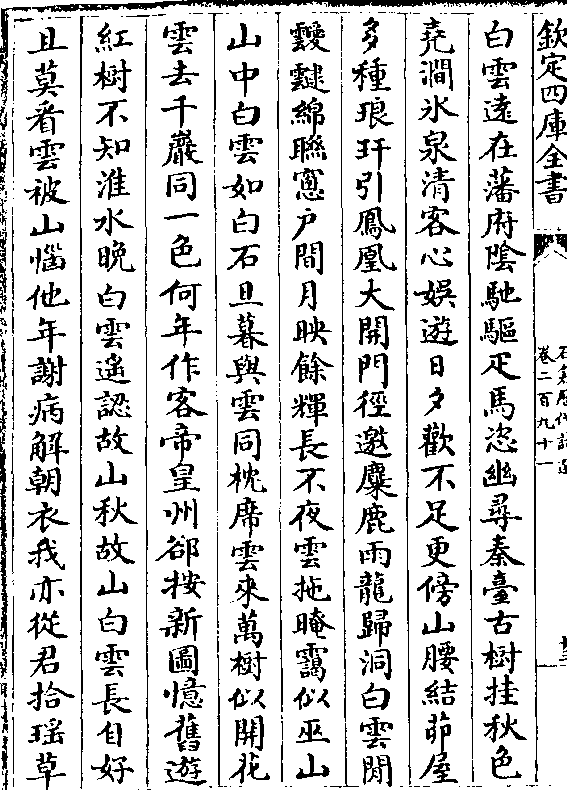 欽定四庫全書
石倉歷代詩選
卷二百九十一
白雲遠在藩府陰馳驅疋馬恣幽尋秦臺古樹挂秋色
堯澗氷泉清客心娛遊日夕歡不足更傍山腰結茆屋
多種琅玕引鳳凰大開門徑邀麋鹿雨龍歸洞白雲閒
靉靆綿聯窻戶間月映餘輝長不夜雲拖晻靄似巫山
山中白雲如白石旦暮與雲同枕席雲來萬樹似開花
雲去千巖同一色何年作客帝皇州郤按新圖憶舊遊
紅樹不知淮水晚白雲遙認故山秋故山白雲長自好
且莫看雲被山惱他年謝病解朝衣我亦從君拾瑶草